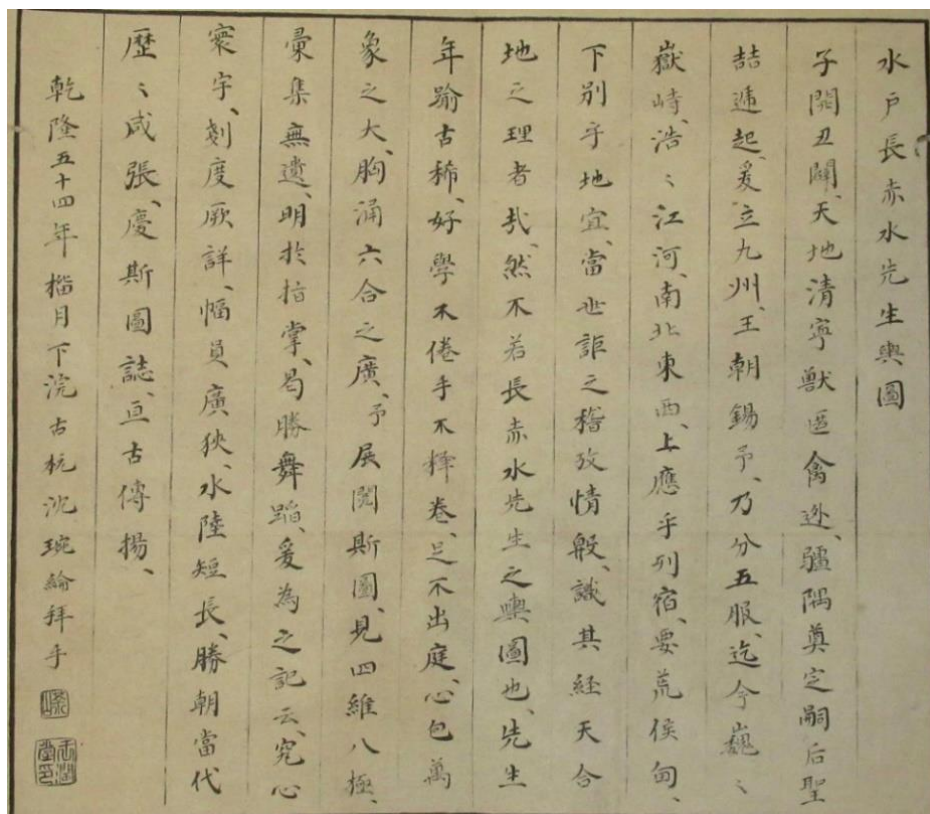 水戸長赤水先生輿圖
子開丑闢、天地清寧獸區禽逊、疆隅奠定嗣后聖
喆遞起、爰立九州、王朝錫予、乃分五服、迄今巍〻
嶽峙、浩〻江河、南北東西、上應乎列宿、要荒侯甸、
下別乎地宜、當世詎乏稽攷情殷、識其經天合
地之理者㢤、然不若長赤水先生之輿圖也、先生
年踰古稀、好學不倦手不釋卷、足不出庭、心包萬
象之大、胸涌六合之廣、予展閱斯圖、見四維八極、
彙集無遺、明於指掌、曷勝舞蹈、爰為之記云、究心
寰宇、剡度厥詳、幅員廣狹、水陸短長、勝朝當代
歷〻咸張、慶斯圖誌、亘古傳揚、
乾隆五十四年橊月下浣古杭沈琬綸拜手